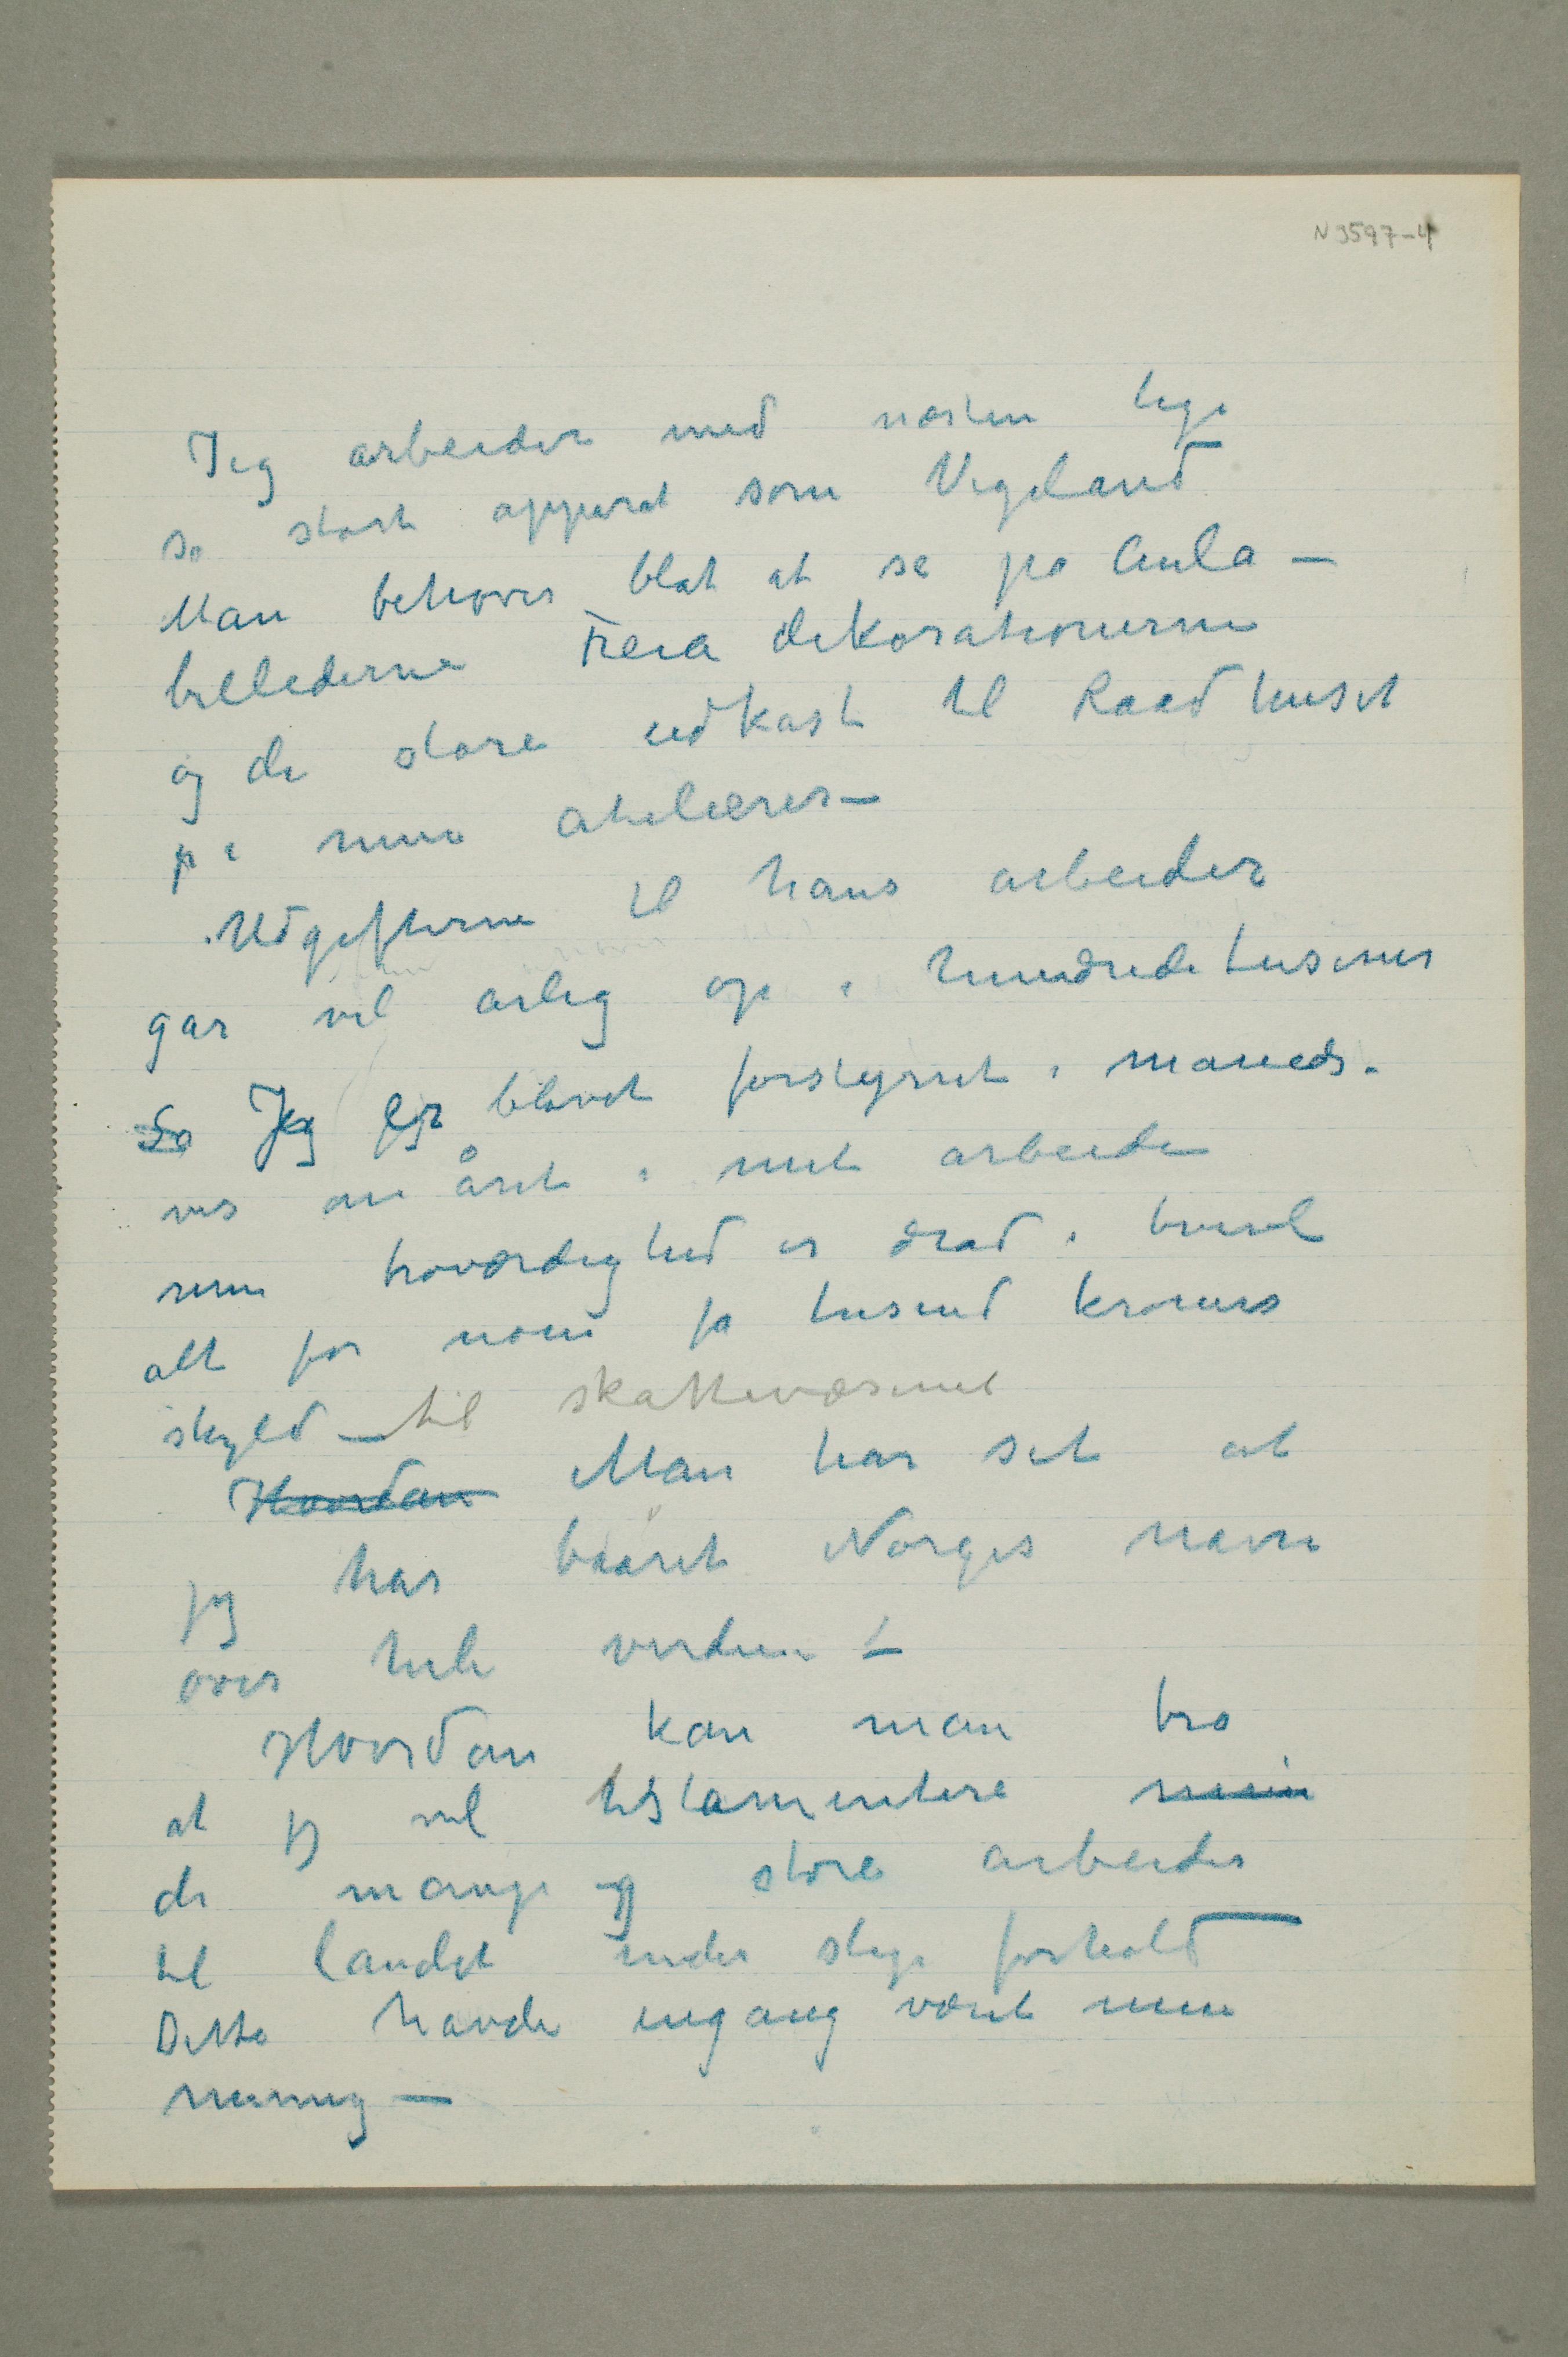 N 3597-4
Jeg arbeider med næsten lige
så stort apparat som Vigeland
Man behøver blot at se på Aula –
billederne Freia dekorationerne
og de store udkast til Raadhuset
på mine atelierer –
Udgifterne til hans arbeider
går vel årlig op i hundredetusener
Så Jeg er blevet forstyrret i måneds-
vis om året i mit arbeide
min troværdighed er drad i tvivl
alt for nogen få tusend kroners
skyld – til skattevæsenet
Hvordan Man har set at
jeg har baaret Norges navn
over hele verden! –
Hvordan kan man tro
at jeg vil testamentere mine
de mange og store arbeider
til landet under slige forhold –
Dette havde engang været min
mening –